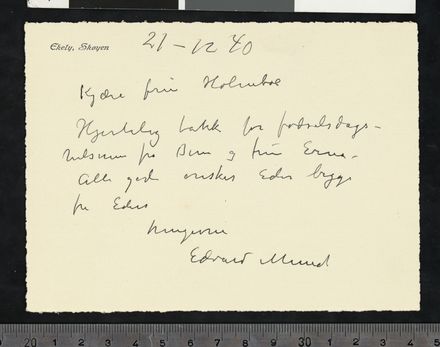 Ekely, Skøyen
21-12 40
Kjære frue Holmboe
Hjertelig takk for fødselsdags-
hilsenen fra Dem og frue Erna.
Alle gode ønsker Eder begge
fra Eders
hengivne
Edvard Munch
20 1 2 3 4 5 6 7 8 9 30 1 2 3 4 5